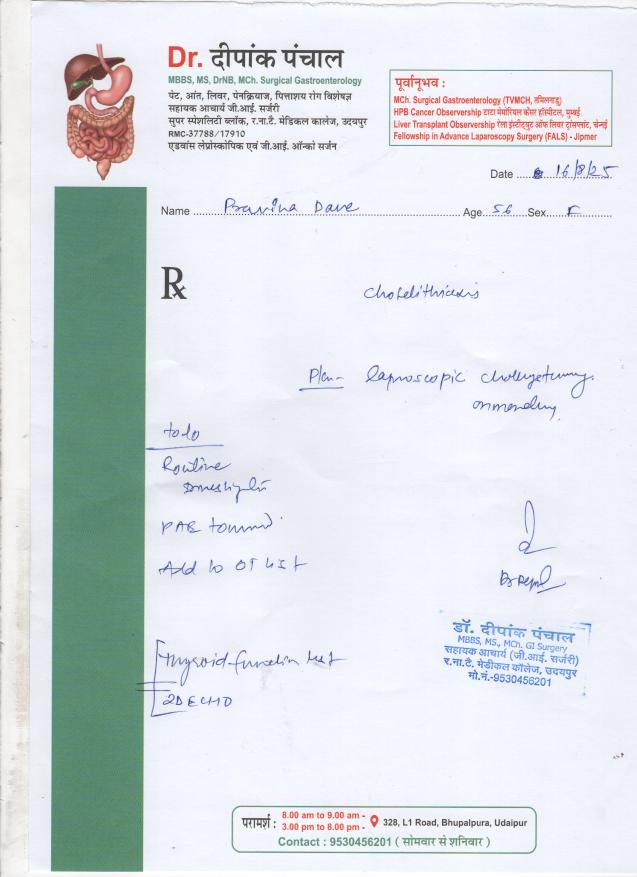 Dr. दीपांक पंचाल
MBBS, MS, DrNB, MCh. Surgical Gastroenterology
पेट, आंत, लिवर, पेनक्रियाज, पित्ताशय रोग विशेषज्ञ
सहायक आचार्य जी.आई. सर्जरी
सुपर स्पेशलिटी ब्लॉक, र.ना.टै. मेडिकल कालेज, उदयपुर
RMC-37788/17910
एडवांस लेप्रोस्कोपिक एवं जी.आई. ऑन्को सर्जन
पूर्वानुभव :
MCh. Surgical Gastroenterology (TVMCH, तमिलनाडु)
HPB Cancer Observership टाटा मेमोरियल कैंसर हॉस्पीटल, मुम्बई
Liver Transplant Observership रेला इंस्टीट्यूट ऑफ लिवर ट्रांसप्लांट, चेन्नई
Fellowship in Advance Laparoscopy Surgery (FALS) - Jipmer
Date 16/8/25
Name Pravina Dave Age 56 Sex F
Rx
Cholelithiasis
Plan- laproscopic
on monday
to do
Routine
PAE
Add to OT List
Thyroid function test
2D ECHO
डॉ. दीपांक पंचाल
MBBS, MS., MCh. GI Surgery
सहायक आचार्य (जी.आई. सर्जरी)
र.ना.टै. मेडीकल कॉलेज, उदयपुर
मो.नं.-9530456201
परामर्श : 8.00 am to 9.00 am -
3.00 pm to 8.00 pm - 328, L1 Road, Bhupalpura, Udaipur
Contact : 9530456201 ( सोमवार से शनिवार )